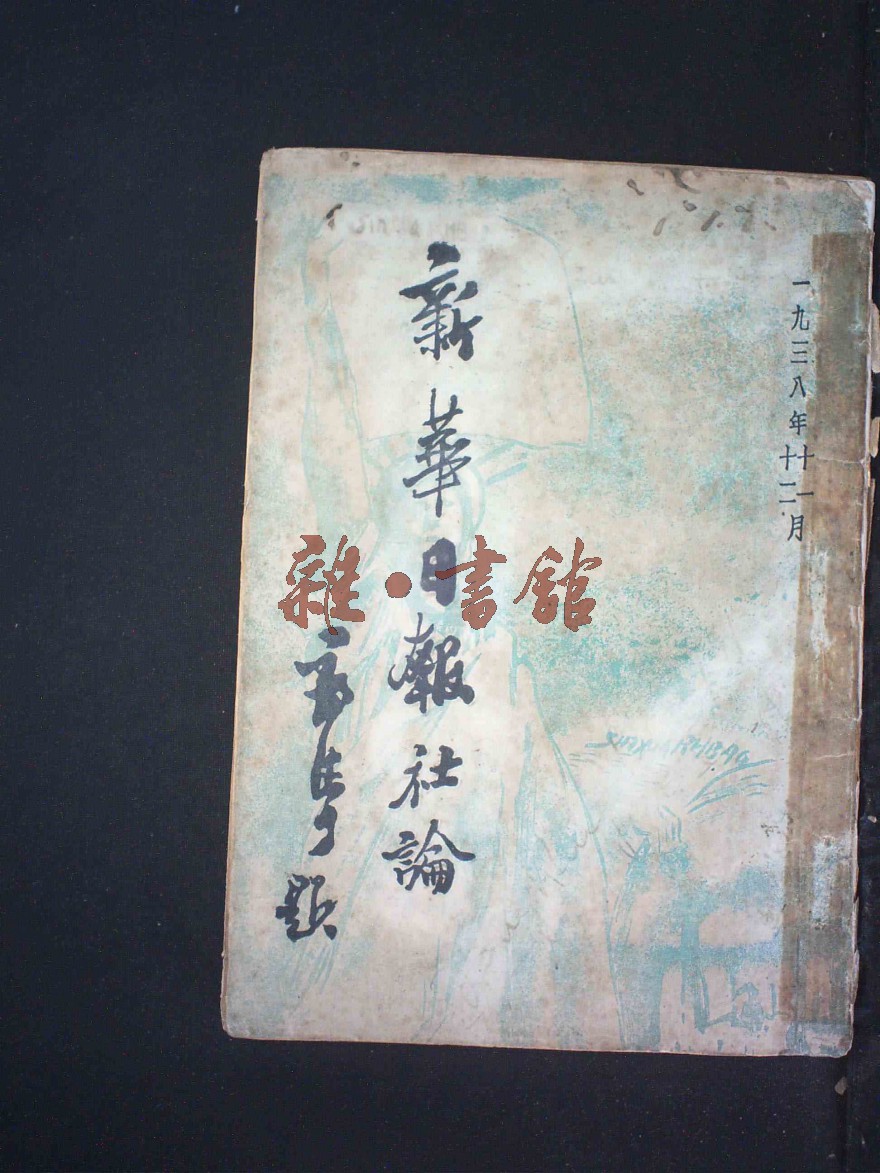 一九三八年十一十二月
新華日報社論
題
雜·書館
XINXUA RHBAO